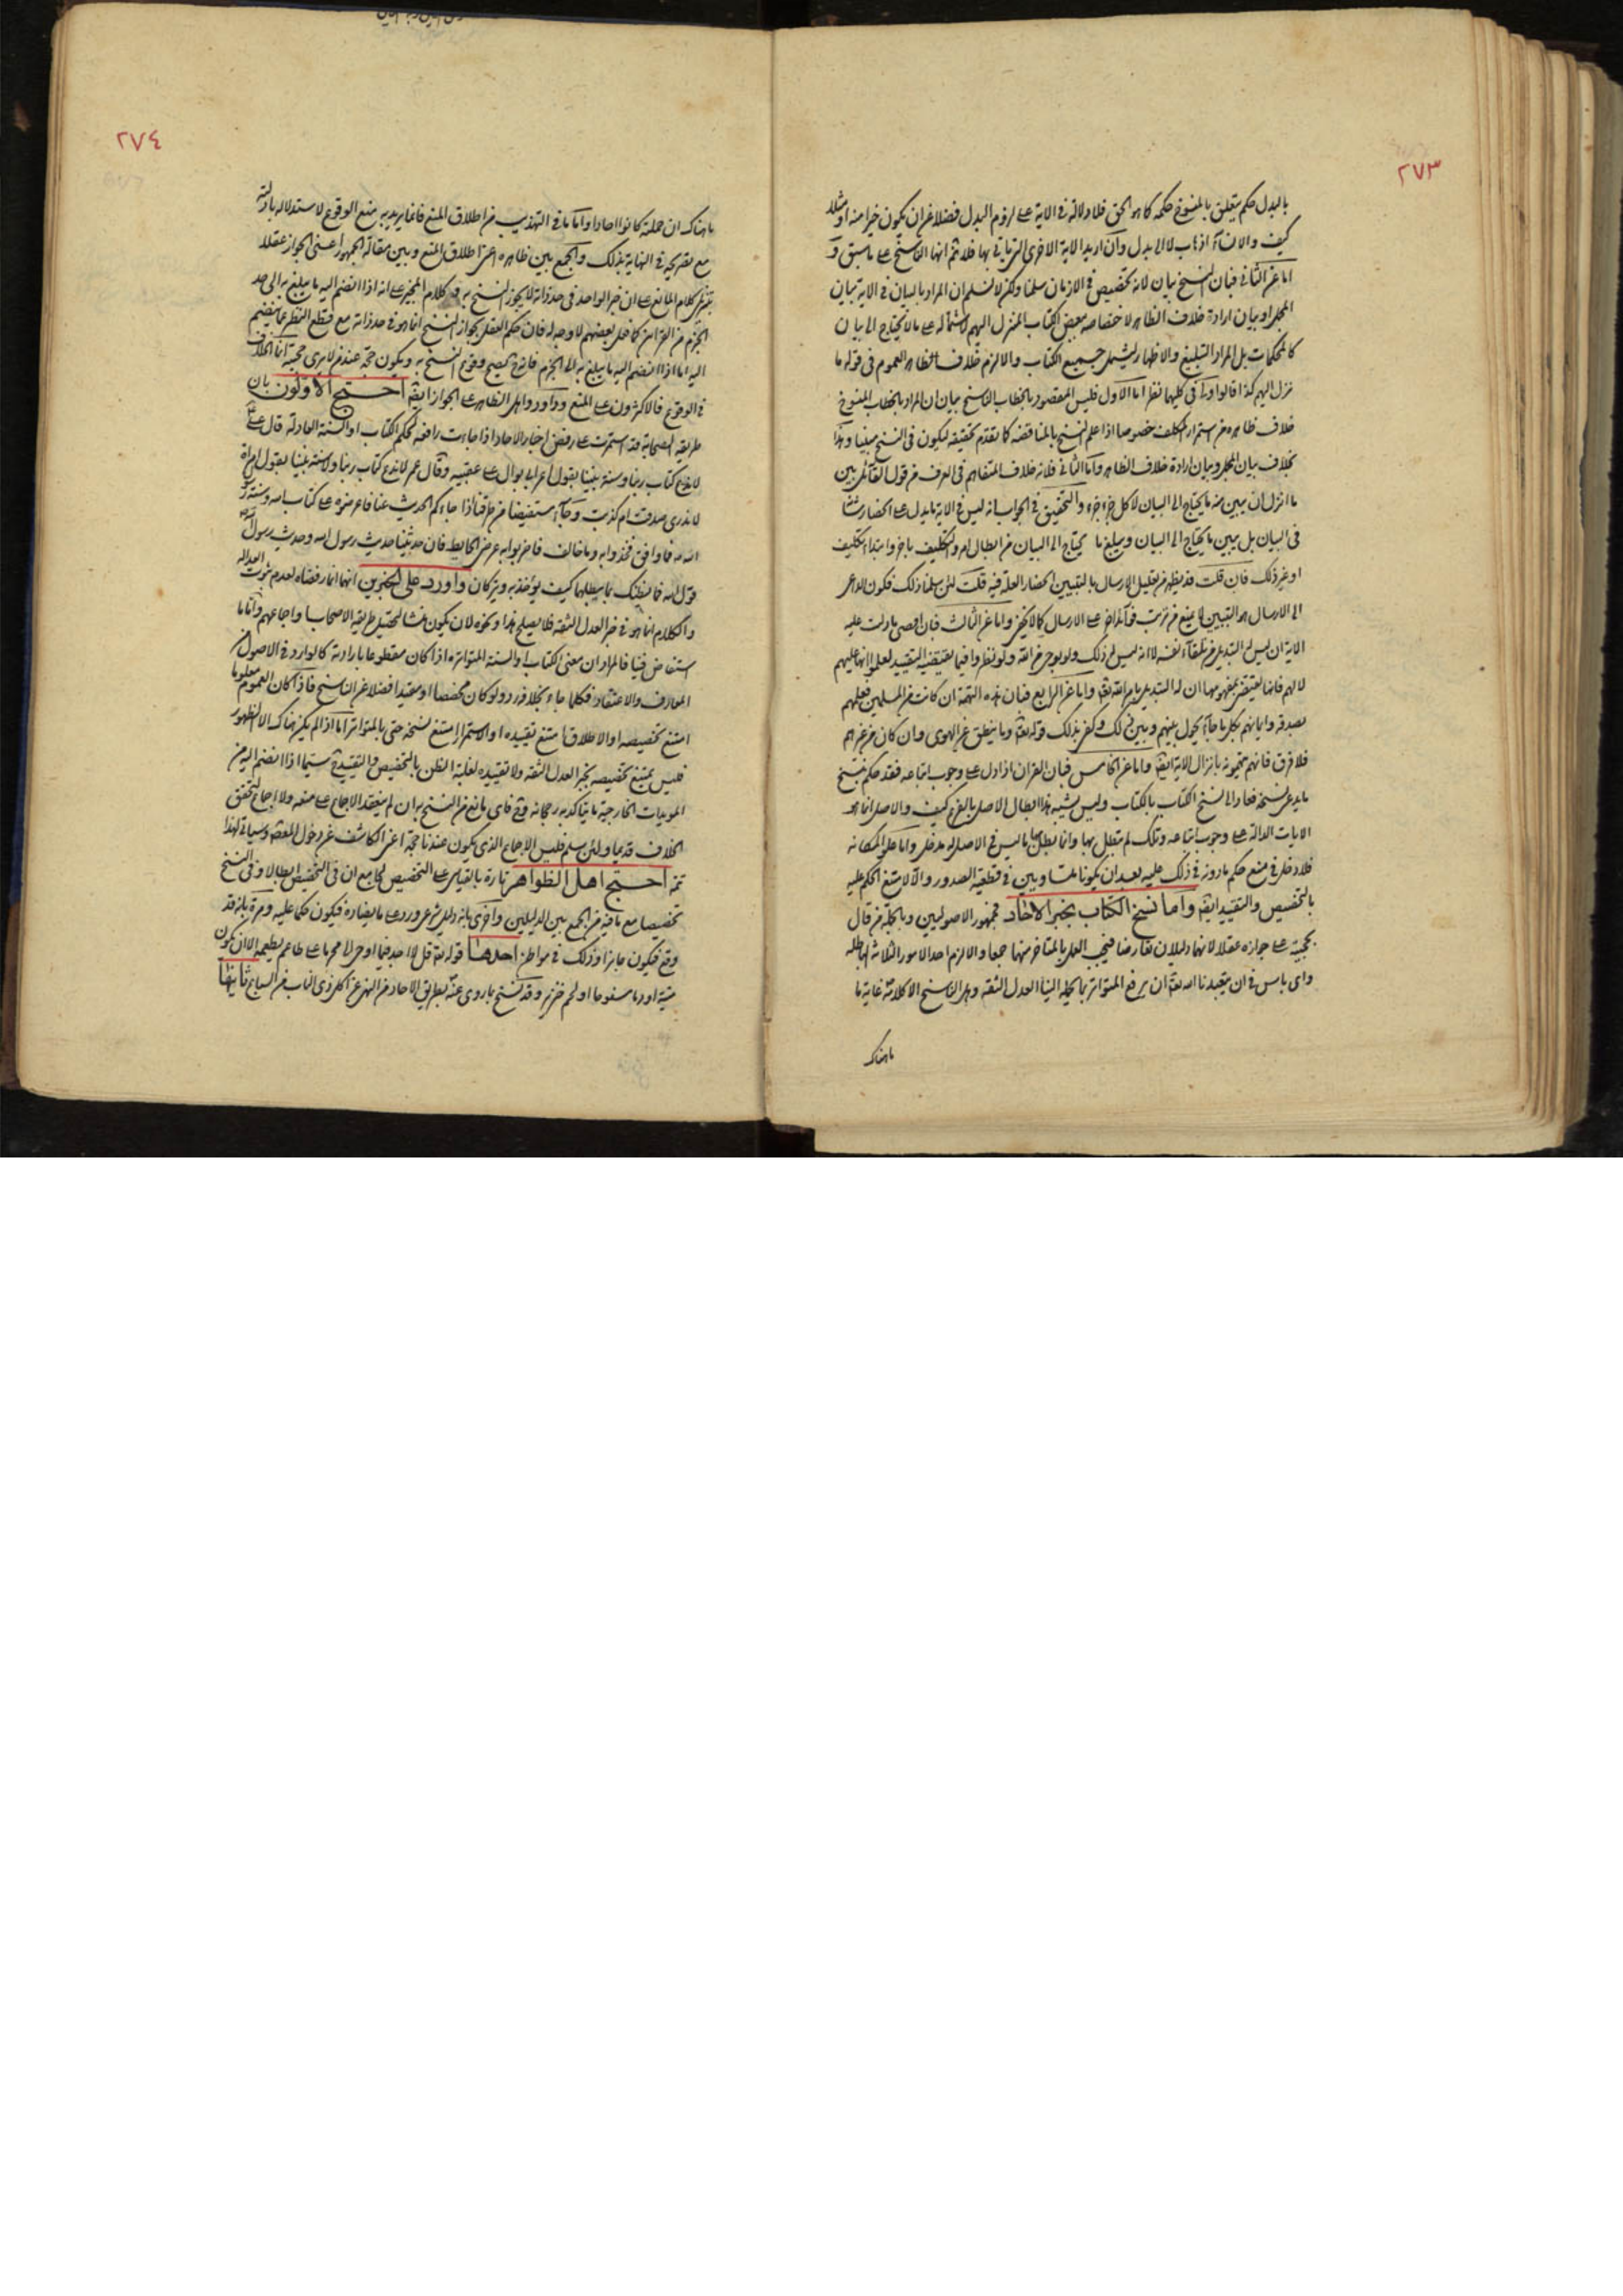 ٢٧٣
بالبدل حكم يتعلق بالمنسوخ حكمه كما هو الحق فلا دلالة في الاية على لزوم البدل فضلا عن ان يكون خيرا منه او مثله
كيف والانساء اذهاب لا الى بدل وان اريد الاية الاخرى التي ياتي بها فلا ثم انها الناسخ على ما سبق و
اما عن الثاني فبان النسخ بيان لانه تخصيص في الازمان سلمنا ولكن لا نسلم ان المراد بالبيان في الاية بيان
المجمل او بيان ارادة خلاف الظاهر لاختصاصه ببعض الكتاب المنزل اليهم لاشتماله على ما لا يحتاج الى بيان
كالمحكمات بل المراد التبليغ والاظهار ليشمل جميع الكتاب والا لزم خلاف الظاهر العموم في قوله ما
نزل اليهم كذا قالوا وفي كليهما نظر اما الاول فليس المقصود بالخطاب الناسخ بيان ان المراد بالخطاب المنسوخ
خلاف ظاهره من استمرار المكلف خصوصا اذا علم النسخ بالمناقضة كما تقدم تحقيقه ليكون في النسخ مبينا وهذا
بخلاف بيان المجمل وبيان ارادة خلاف الظاهر واما الثاني فلانه خلاف المتفاهم في العرف من قول القائل بين
ما انزل ان يبين منه ما يحتاج الى البيان لا كل جزء جزء والتحقيق في الجواب انه ليس في الاية ما يدل على انحصار شانه
في البيان بل يبين ما يحتاج الى البيان ويبلغ ما يحتاج الى البيان من ابطال امر والتكليف باخر وابتداء تكليف
او غير ذلك فان قلت قد يظهر من تعليل الارسال بالتبيين انحصار العلة فيه قلت لئن سلمنا ذلك فكون الداعي
الى الارسال هو التبيين لا يمنع من ترتب فوائد اخر على الارسال كما لا يخفى واما عن الثالث فبان اقصى ما دلت عليه
الاية ان ليس له التبديل من تلقاء نفسه لا انه ليس له ذلك ولو بوحي من الله ولو نظروا فيما يقتضيه التقييد لعلموا انها عليهم
لا لهم فانما يقتضي بمفهومها ان له التبديل بامر الله تعالى واما عن الرابع فبان هذه التهمة ان كانت من المسلمين فعلمهم
بصدقه وايمانهم بكل ما جاء به يحول بينهم وبين ذلك وكفى بذلك قوله تعالى وما ينطق عن الهوى وان كان من غيرهم
فلا فرق فانهم يتهمونه بانزال الاية ايضا واما عن الخامس فبان القران اذا دل على وجوب اتباعه فقد حكم بنسخ
ما يدعي نسخه فعاد الى نسخ الكتاب بالكتاب وليس يشبه هذا ابطال الاصل بالفرع كيف والاصل انما هو
الايات الدالة على وجوب اتباعه وتلك لم تبطل بها وانما يبطل بها ما ليس في الاصل له مدخل واما علو المكانة
فلا دخل في منع حكم ما دونه في ذلك عليه بعد ان يكونا متساويين في قطعية الصدور والا لامتنع الحكم عليه
بالتخصيص والتقييد ايضا واما نسخ الكتاب بخبر الاحاد فجمهور الاصوليين وبالجملة من قال
بحجيته على جوازه عقلا لانهما دليلان تعارضا فيجب العمل بالمتاخر منهما جمعا والا لزم احد الامور الثلاثة الباطلة
واي باس في ان يتعبدنا الله تعالى ان يرفع المتواتر بما يحمله الينا العدل الثقة وهل الناسخ الا كلامه غاية ما
ما هناك
٢٧٤
ما هناك ان حملته كانوا احادا واما ما في التهذيب من اطلاق المنع فانما يريد به منع الوقوع لاستدلاله بادلته
مع تصريحه في النهاية بذلك والجمع بين ظاهره اعني اطلاق المنع وبين مقالة الجمهور اعني الجواز عقلا
بتنزيل كلام المانع على ان خبر الواحد في حد ذاته لا يجوز النسخ به وكلام المجيز على انه اذا انضم اليه ما يبلغ به الى حد
الجزم من القرائن كما فعل بعضهم لا وجه له فان حكم العقل بجواز النسخ انما هو في حد ذاته مع قطع النظر عما ينضم
اليه اما اذا انضم اليه ما يبلغ به الى الجزم فانه ح يصح وقوع النسخ به ويكون حجة عند من لا يرى حجيته اما الخلاف
في الوقوع فالاكثرون على المنع وداود واهل الظاهر على الجواز ايضا احتج الاولون بان
طريقة الصحابة قد استمرت على رفض اخبار الاحاد اذا جاءت رافعة لحكم الكتاب او السنة العادلة قال علي
لا ندع كتاب ربنا وسنة نبينا بقول اعرابي بوال على عقبيه وقال عمر لا ندع كتاب ربنا ولا سنة نبينا بقول امراة
لا ندري صدقت ام كذبت وجاء مستفيضا من طرقنا اذا جاءكم الحديث عنا فاعرضوه على كتاب الله وسنة رسول
الله فما وافق فخذوا به وما خالف فاضربوا به عرض الحائط فان حديثنا حديث رسول الله وحديث رسول الله
قول الله فما ظنك بما يبطلهما كيف يؤخذ به ويتركان واورد على الخبرين انهما انما رفضاه لعدم ثبوت العدالة
والكلام انما هو في خبر العدل الثقة فلا يصلح هذا ونحوه لان يكون منشا لتحصيل طريقة الاصحاب واجماعهم واما ما
استفاض فينا فالمراد ان معنى الكتاب او السنة المتواترة اذا كان مقطوعا بارادته كالوارد في الاصول من
المعارف والاعتقاد فكلما جاء بخلافه رد ولو كان مخصصا او مقيدا فضلا عن الناسخ فاذا كان العموم معلوما
امتنع تخصيصه او الاطلاق امتنع تقييده او الاستمرار امتنع نسخه حتى بالمتواتر اما اذا لم يكن هناك الا الظهور
فليس يمتنع تخصيصه بخبر العدل الثقة ولا تقييده لغلبة الظن بالتخصيص والتقييد سيما اذا انضم اليه من
المؤيدات الخارجية ما يتاكد به رجحانه وح فاي مانع من النسخ به ان لم ينعقد الاجماع على منعه ولا اجماع لتحقق
الخلاف قديما ولئن سلم فليس الاجماع الذي يكون عندنا حجة اعني الكاشف عن دخول المعصوم وسياتي لهذا
تتمة احتج اهل الظواهر تارة بالقياس على التخصيص لجامع ان في التخصيص ابطالا وفي النسخ
تخصيصا مع ما فيه من الجمع بين الدليلين واخرى بانه دليل شرعي ورد على ما يضاده فيكون حكما عليه ومرة بانه قد
وقع فيكون جائزا وذلك في مواطن احدها قوله تعالى قل لا اجد فيما اوحي الي محرما على طاعم يطعمه الا ان يكون
ميتة او دما مسفوحا او لحم خنزير وقد نسخ بما روي عنه بطريق الاحاد من النهي عن اكل ذي الناب من السباع ثانيها